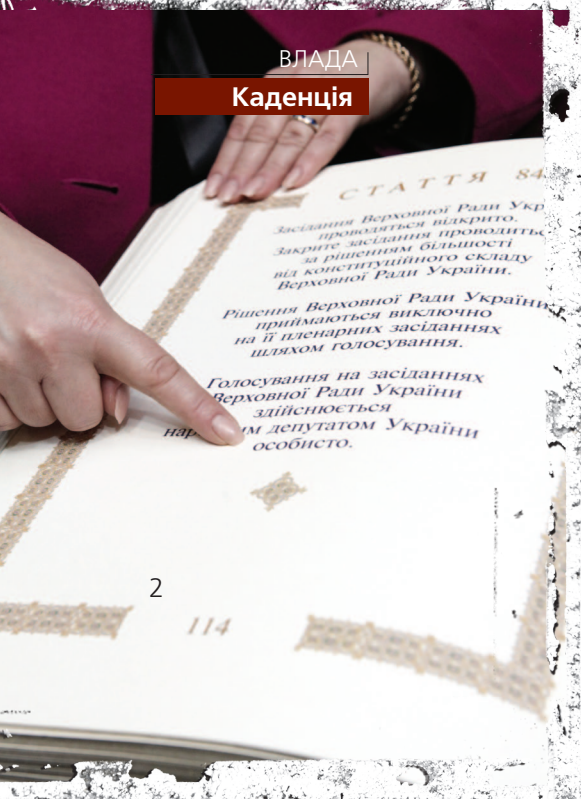 ВЛАДА
Каденція
СТАТТЯ 84
Засідання Верховної Ради Укр
проводяться відкрито.
Закрите засідання проводитьс
за рішенням більшості
від конституційного складу
Верховної Ради України.
Рішення Верховної Ради України
приймаються виключно
на її пленарних засіданнях
шляхом голосування.
Голосування на засіданнях
Верховної Ради України
здійснюється
депутатом України
особисто.
2
114